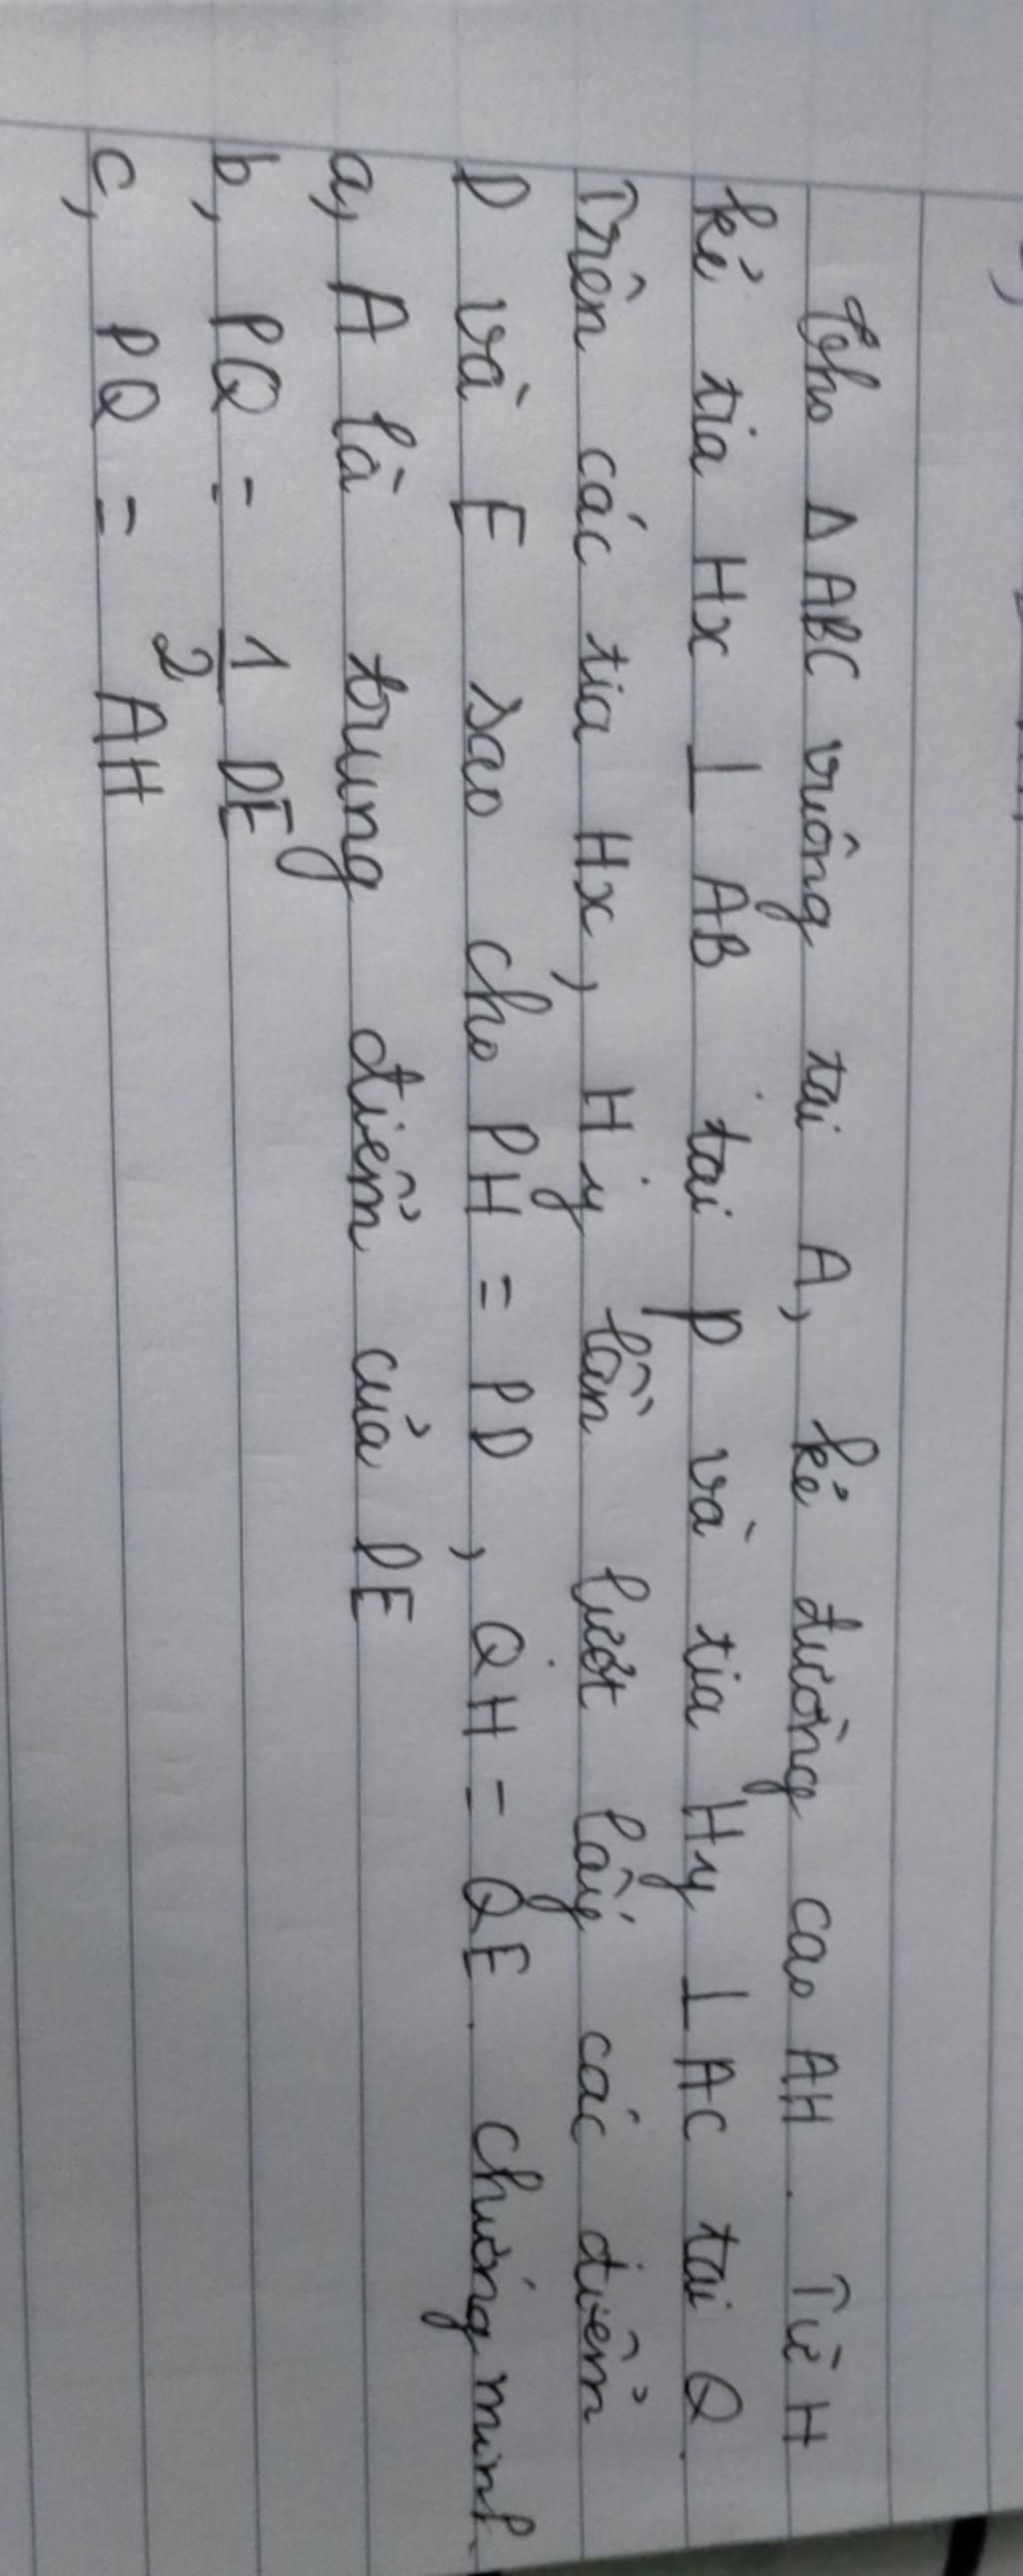 Cho Δ ABC vuông tại A, kẻ đường cao AH. Từ H
kẻ tia Hx ⊥ AB tại P và tia Hy ⊥ AC tại Q.
Trên các tia Hx, Hy lần lượt lấy các điểm
D và E sao cho PH = PD, QH = QE. chứng minh
a, A là trung điểm của DE
b, PQ = 1/2 DE
c, PQ = AH